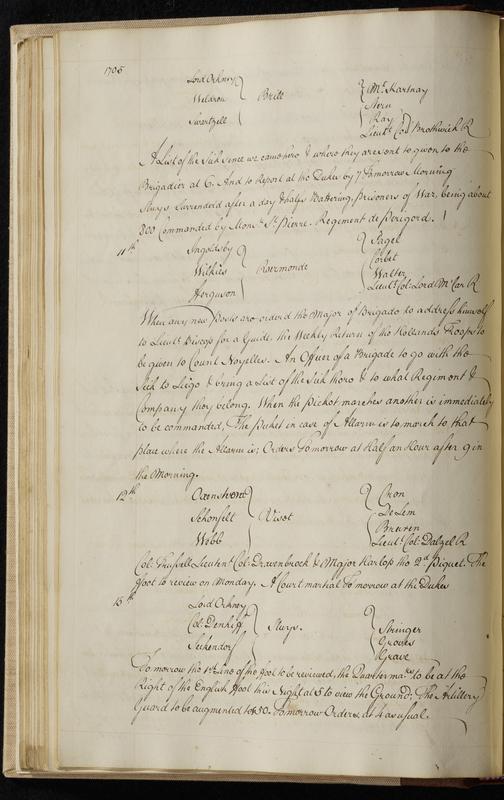 1705
Lord Orkney Mr. Hartnay
Weldron Britt Stern
Swartzell Ray
Lieutt. Col: Brothwick R
A List of the Sick Sence we came here & where they are sent to given to the
Brigadier at 6. And to Report at the Dukes by 7 Tomorrow Morning
Huys Surrenderd after a day & halfs Battering, Prisoners of War, being about
300 Commanded by Monsr. St. Pierre. Regiment de Perigord.
11th Ingoldsby Sagel
Wilkies Ruermonde Corbet
Ferguson Walter
Lieutt. Col: Lord McCar R
When any new Posts are orderd the Major of Brigade to address himself
to Lieutt Biscop for a Guide, the Weekly Return of the Hollands Troops to
be given to Count Noyelles. An Officer of a Brigade to go with the
Sick to Liege & bring a List of the Sick there & to what Regiment &
Company they belong. When the Picket marches another is immediately
to be commanded, The Picket in case of Allarm is to march to that
place where the Allarm is; Orders Tomorrow at Half an Hour after 9 in
the Morning.
12th Oxenstern Cron
Schonfelt Visot DeLem
Webb Bueren
Lieutt Col: Dalzel R
Col: Lieutent Col: Drawenbrock & Major Harloss the 2d Piquet. The
foot to review on Monday. A Court martial Tomorrow at the Dukes
13th Lord Orkney
Col: Denhoff Sturys. Stringer
Seckendorf Groves
Grave
Tomorrow the 1st Line of the foot to be reviewed, the Quarterma:rs to be at the
Right of the English foot this Night at 5 to view the Ground; The Artillery
Guard to be augmented to 450. Tomorrow Orders at 4 as usual.